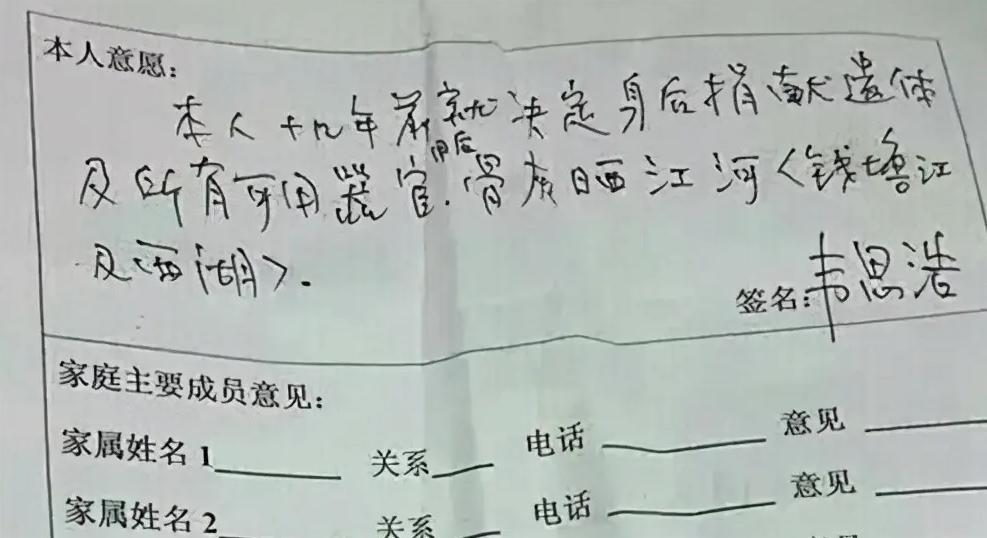 本人意愿：
本人十几年前就决定身后捐献遗体
用后
及所有可用器官.骨灰晒江河<钱塘江
及西湖>.
签名：韦思浩
家庭主要成员意见：
家属姓名1 关系 电话 意见
家属姓名2 关系 电话 意见